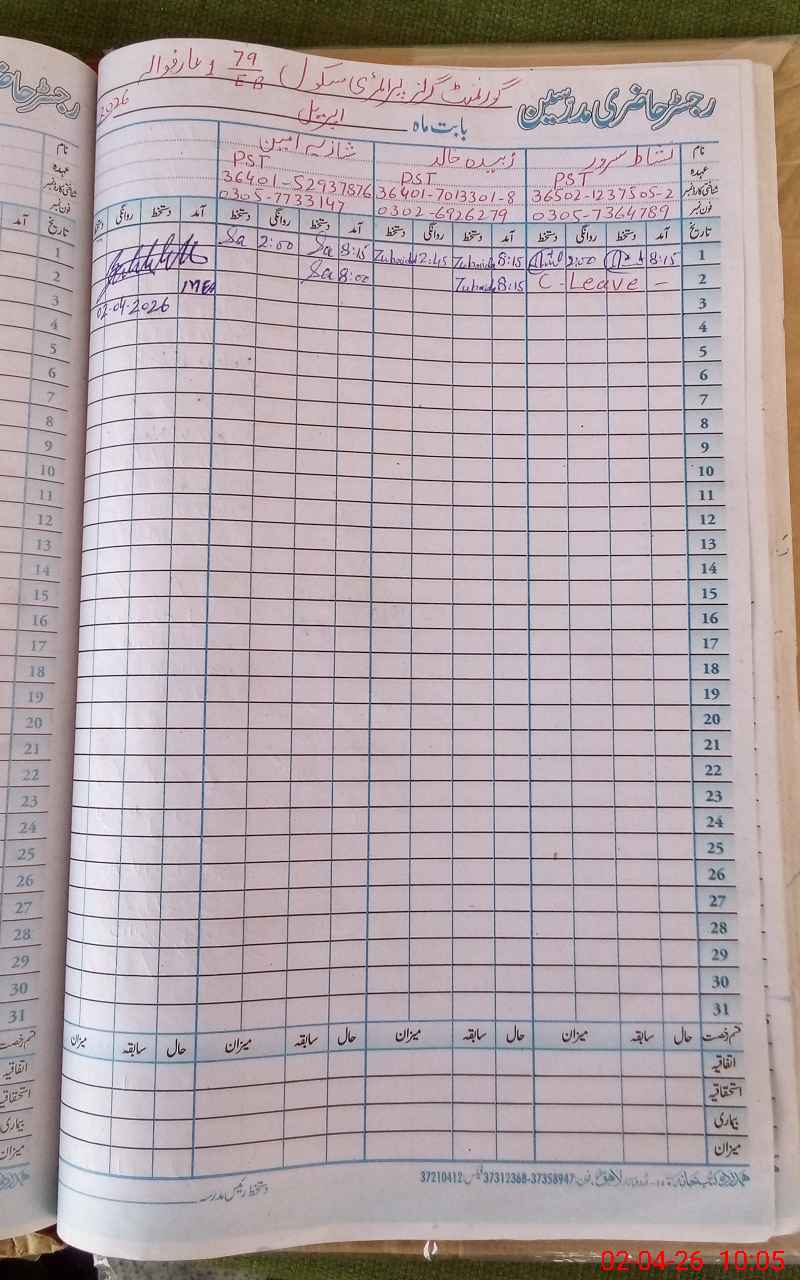 گورنمنٹ گرلز پرائمری سکول 79/EB عارفوالہ
رجسٹر حاضری مدرسین
بابت ماہ اپریل 2026
نام نشاط سرور زبیدہ خالد شازیہ امین
عہدہ PST PST PST
شناختی کارڈ نمبر 36502-1237505-2 36401-7013301-8 36401-52937876
فون نمبر 0305-7364789 0302-6926279 0305-7733147
تاریخ آمد دستخط روانگی دستخط آمد دستخط روانگی دستخط آمد دستخط روانگی دستخط آمد دستخط روانگی دستخط
1 8:15 2:00 8:15 Zubaida 2:45 Zubaida 8:15 Sa 2:00 Sa
2 C-Leave – 8:15 Zubaida 8:00 Sa MEA
02-04-2026
3
4
5
6
7
8
9
10
11
12
13
14
15
16
17
18
19
20
21
22
23
24
25
26
27
28
29
30
31
قسم رخصت حال سابقہ میزان حال سابقہ میزان حال سابقہ میزان حال سابقہ میزان
اتفاقیہ
استحقاقیہ
بیماری
میزان
دستخط رئیس مدرسہ
لاہور فون: 37358947-37312368 فیکس 37210412
رجسٹر حاضری
نام
عہدہ
شناختی کارڈ نمبر
فون نمبر
تاریخ آمد
1
2
3
4
5
6
7
8
9
10
11
12
13
14
15
16
17
18
19
20
21
22
23
24
25
26
27
28
29
30
31
قسم رخصت
اتفاقیہ
استحقاقیہ
بیماری
میزان
02-04-26 10:05